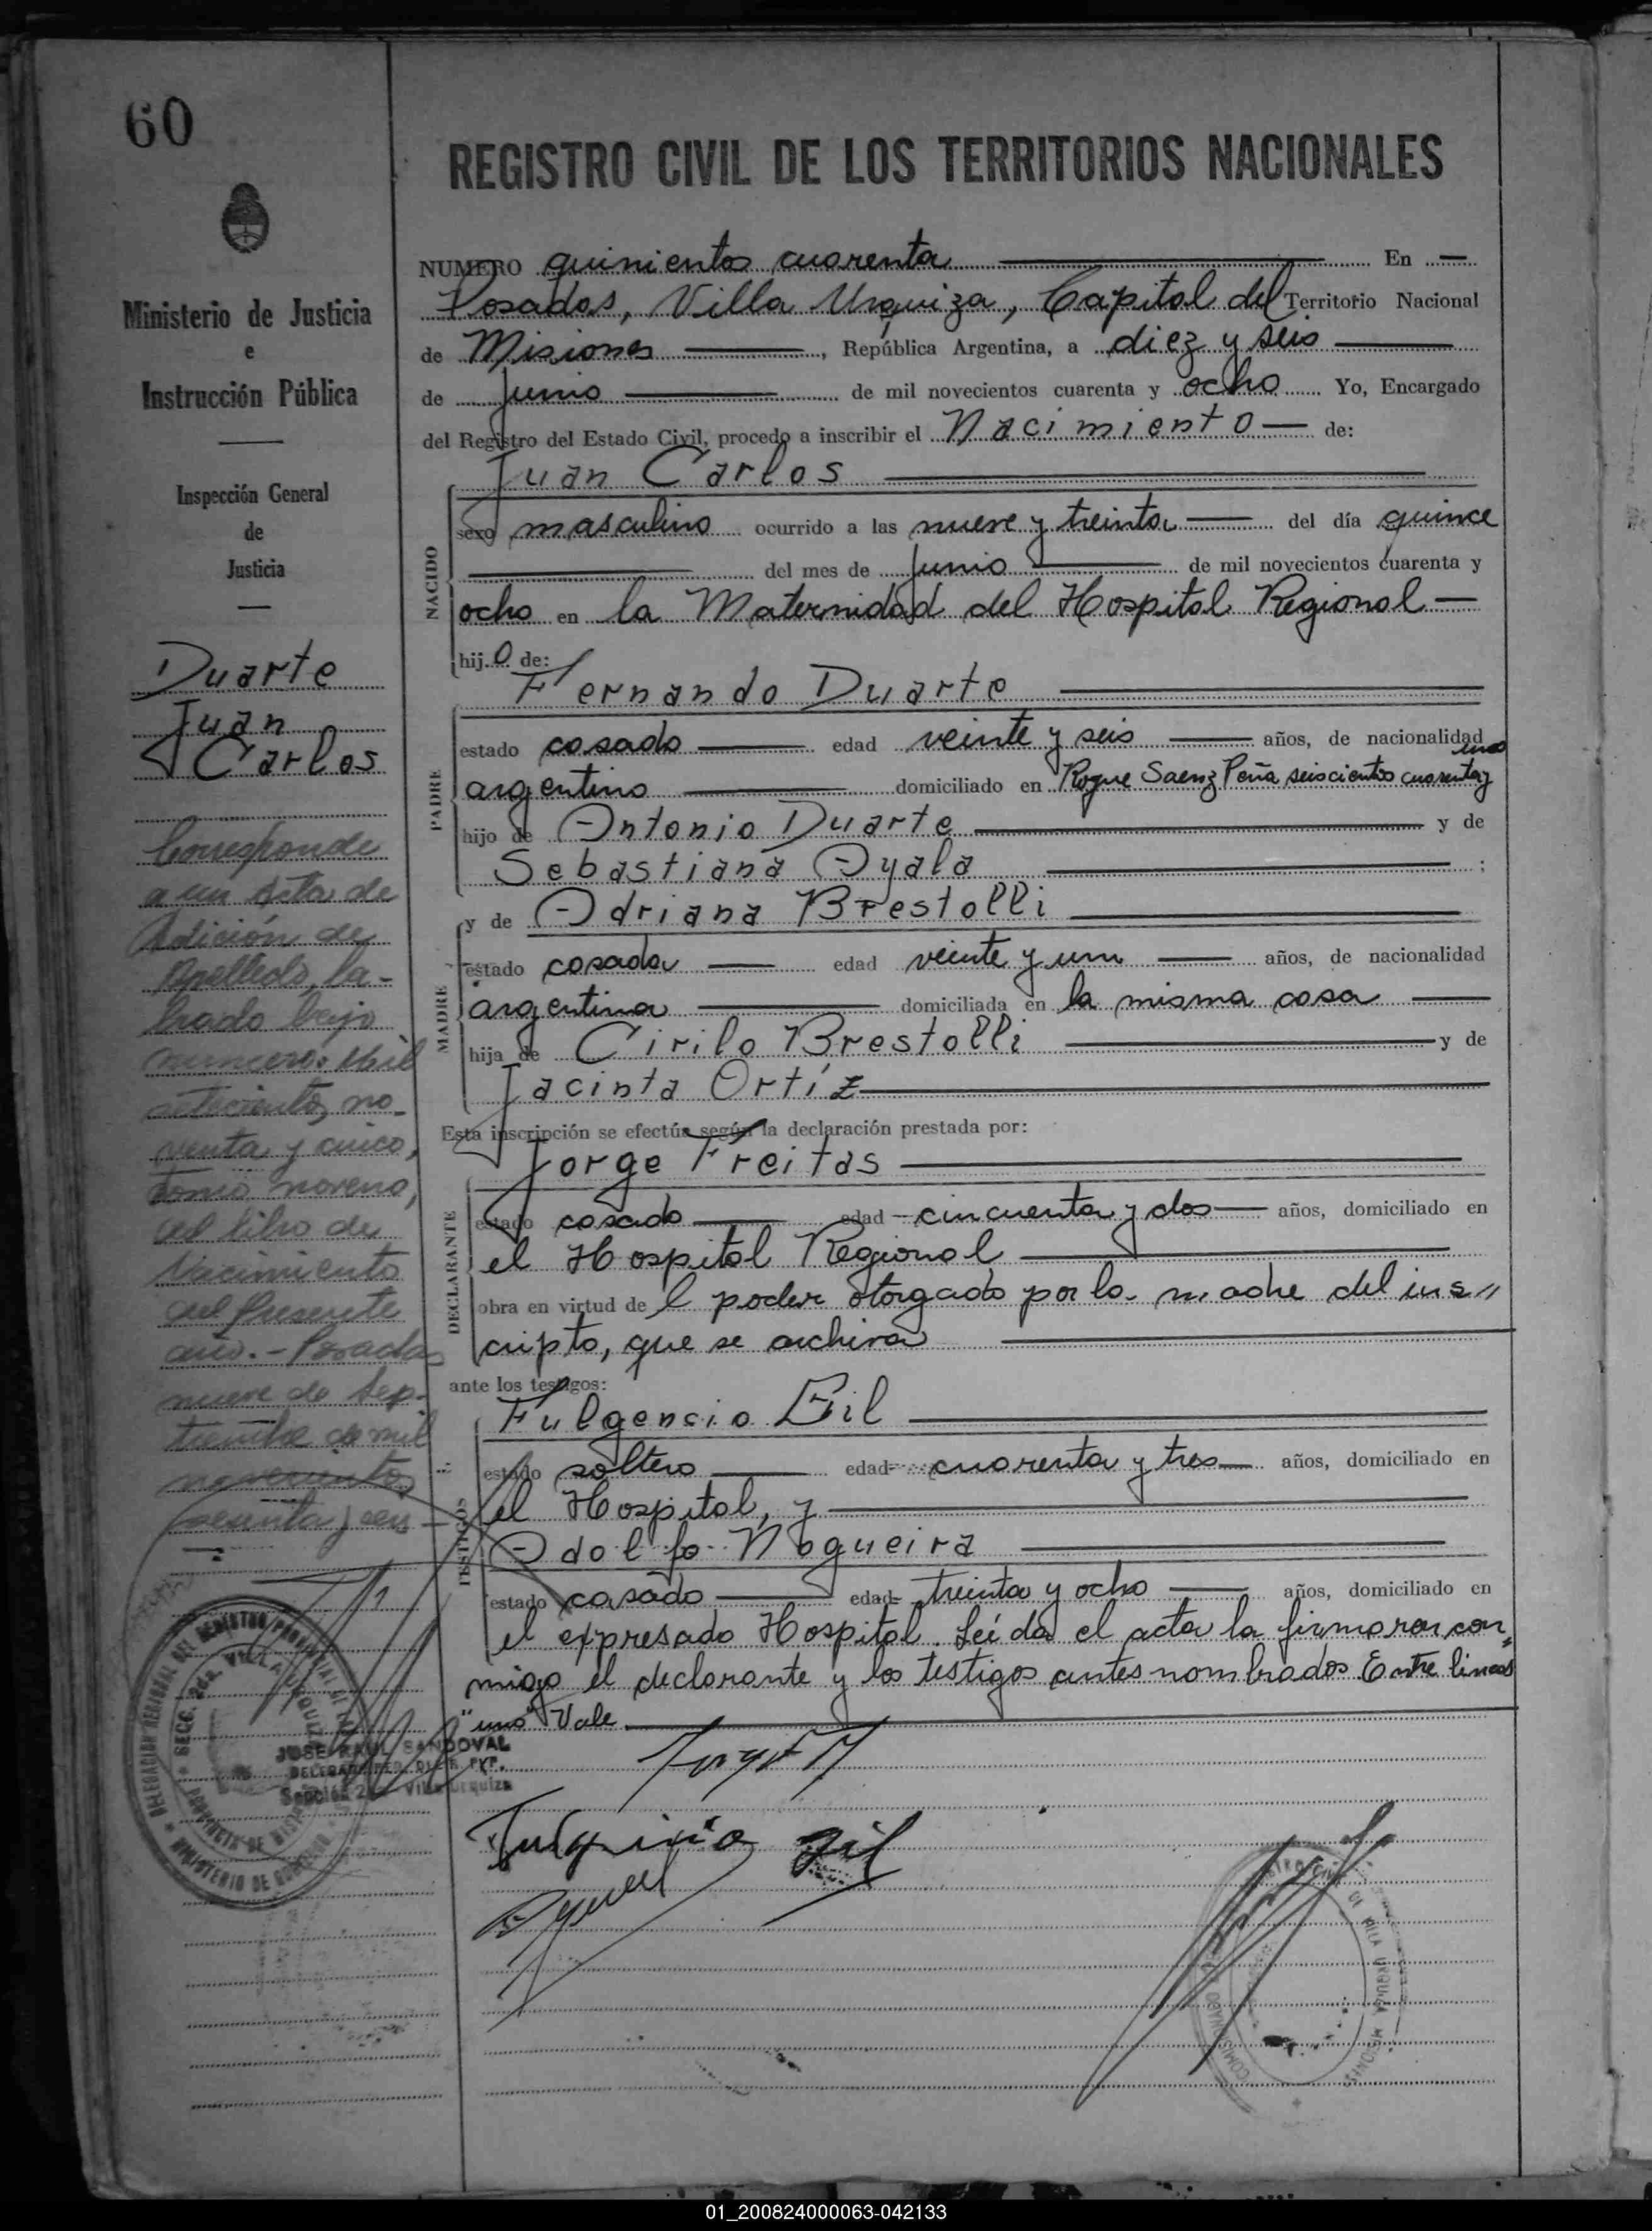 60
Ministerio de Justicia
e
Instrucción Pública
Inspección General
de
Justicia
Duarte
Juan
Carlos
Corresponde
a un Acta de
Adición de
Apellido, la-
brado bajo
número: Mil
setecientos no-
venta y cinco,
tomo noveno,
del libro de
Nacimiento
del presente
año.- Posadas
nueve de Sep-
tiembre de mil
novecientos
JOSE RAUL SANDOVAL
REGISTRO CIVIL DE LOS TERRITORIOS NACIONALES
NUMERO quinientos cuarenta En
Posadas, Villa Urquiza, Capital del Territorio Nacional
de Misiones, República Argentina, a diez y seis
de junio de mil novecientos cuarenta y ocho Yo, Encargado
del Registro del Estado Civil, procedo a inscribir el Nacimiento de:
Juan Carlos
NACIDO
sexo masculino ocurrido a las nueve y treinta del día quince
del mes de junio de mil novecientos cuarenta y
ocho en la Maternidad del Hospital Regional
hijo de:
Fernando Duarte
PADRE
estado casado edad veinte y seis años, de nacionalidad
uno
argentino domiciliado en Roque Saenz Peña seiscientos cuarenta y
hijo de Antonio Duarte y de
Sebastiana Ayala ;
y de Adriana Brestolli
MADRE
estado casada edad veinte y un años, de nacionalidad
argentina domiciliada en la misma casa
hija de Cirilo Brestolli y de
Jacinta Ortíz
Esta inscripción se efectúa según la declaración prestada por:
Jorge Freitas
DECLARANTE
estado casado edad cincuenta y dos años, domiciliado en
el Hospital Regional
obra en virtud del poder otorgado por la madre del ins"
cripto, que se archiva
ante los testigos:
Fulgencio Gil
TESTIGOS
estado soltero edad cuarenta y tres años, domiciliado en
el Hospital, y
Adolfo Nogueira
estado casado edad treinta y ocho años, domiciliado en
el expresado Hospital. Leída el acta la firmaron con"
migo el declarante y los testigos antes nombrados Entre lineas
"uno" Vale
Fulgencio Gil
01_200824000063-042133